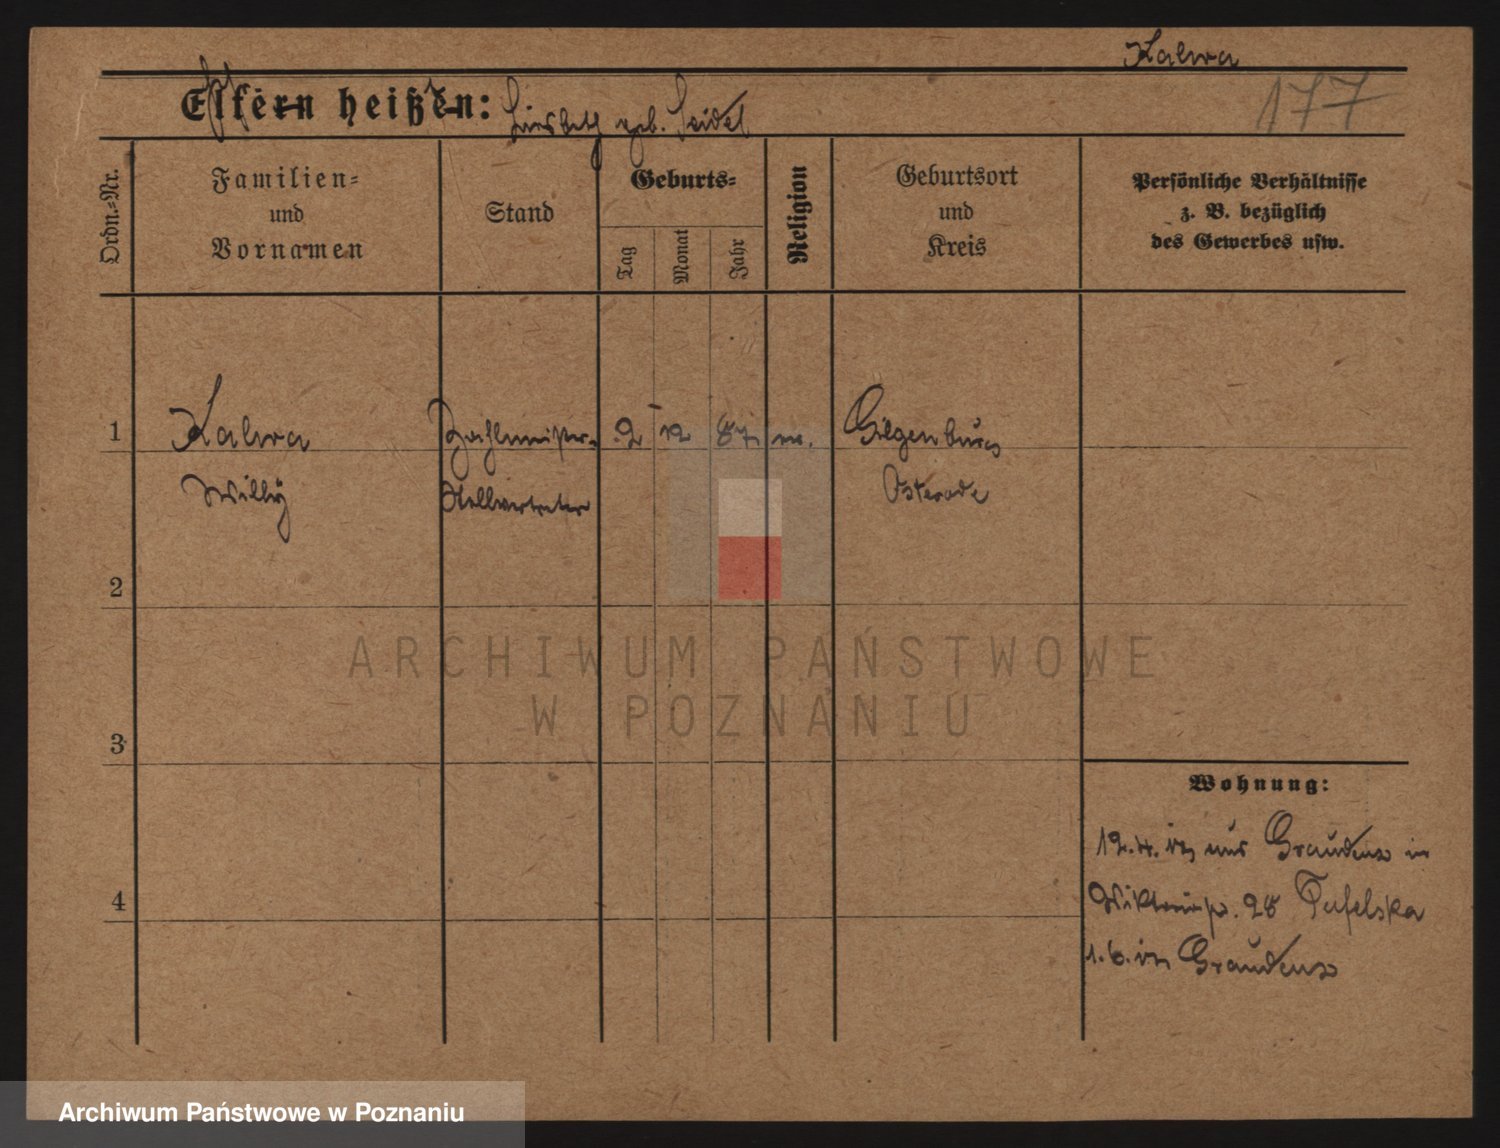 Kalwa
177
Eltern heißen: Lisbeth geb. Seidel
Ordn.=Nr.
Familien=
und
Vornamen
Stand
Geburts=
Tag
Monat
Jahr
Religion
Geburtsort
und
Kreis
Persönliche Verhältnisse
z. B. bezüglich
des Gewerbes usw.
1 Kalwa Zahlmeister- 2 12 87 Gilgenburg
Willy Stellvertreter Osterode
2
3
4
ARCHIWUM PAŃSTWOWE
W POZNANIU
Wohnung:
12.4. aus Graudenz in
Viktoriastr. 28
1.6. Graudenz
Archiwum Państwowe w Poznaniu